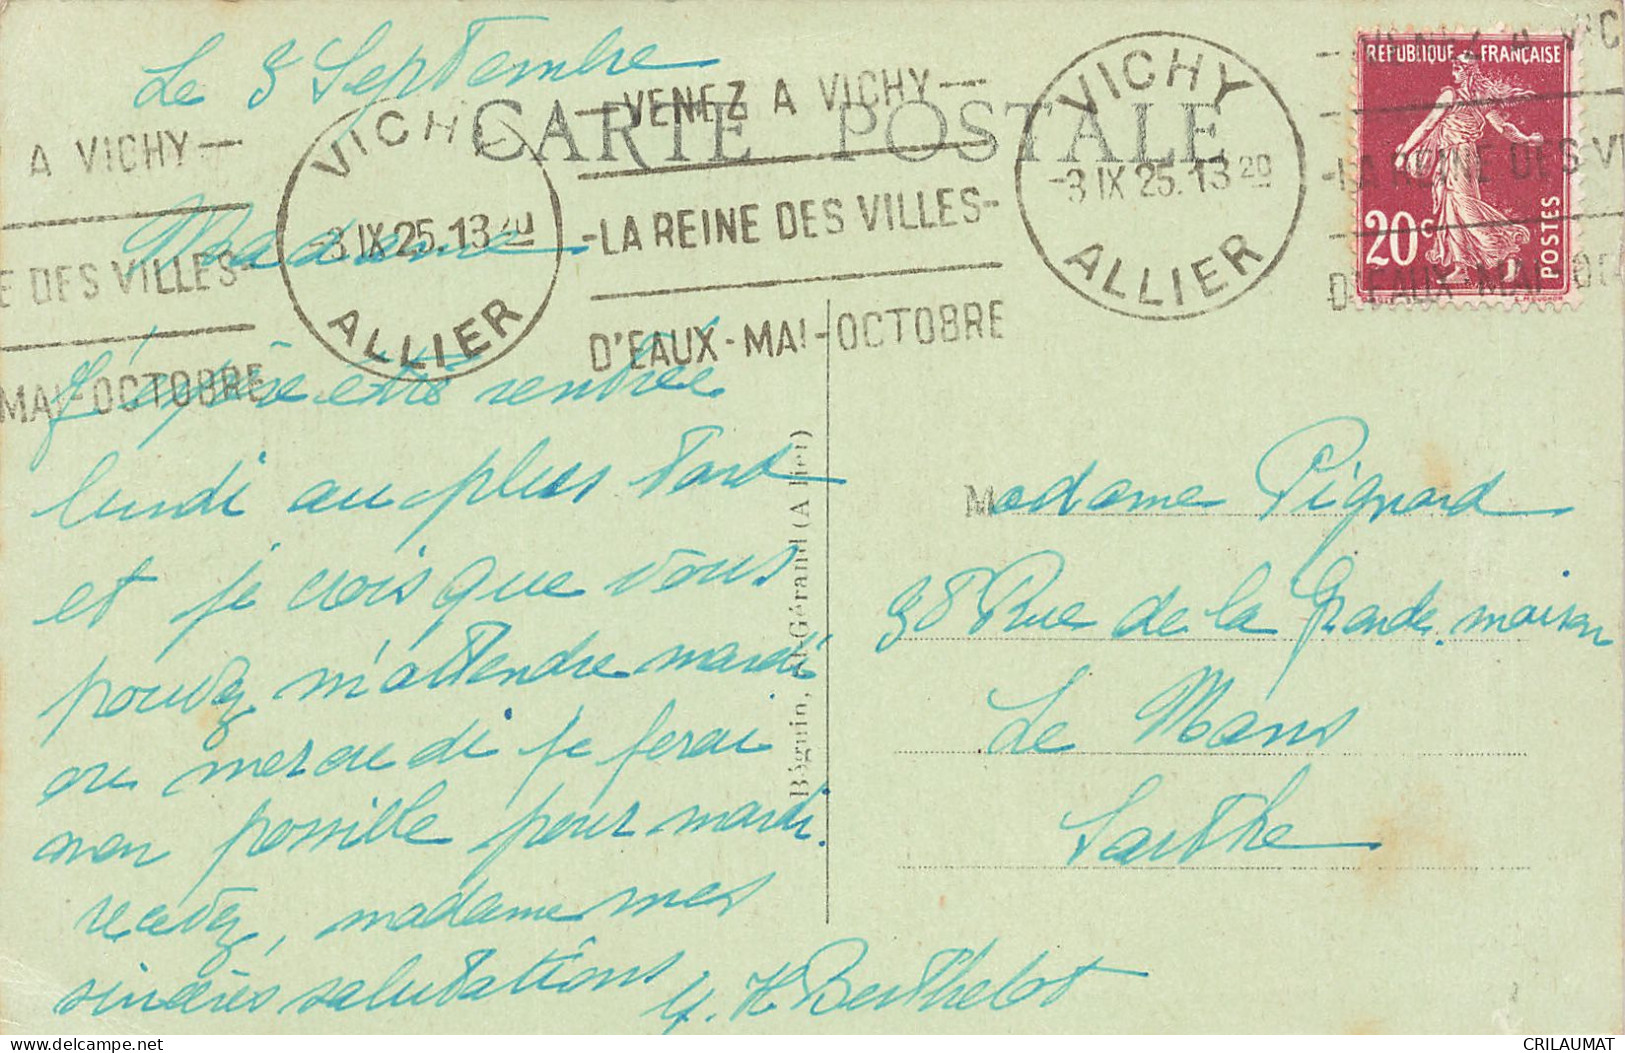 Le 3 Septembre
CARTE POSTALE
A VICHY
E DES VILLES-
MAI-OCTOBRE
VICHY
3 IX 25.13 20
ALLIER
-VENEZ A VICHY-
-LA REINE DES VILLES-
D'EAUX-MAI-OCTOBRE
VICHY
-3 IX 25.13 20
ALLIER
-LA REINE DES VI
D'EAUX-MAI-OC
REPUBLIQUE FRANÇAISE
20c
POSTES
Madame
J'espère être rentrée
lundi au plus tard
et je crois que vous
pouvez m'attendre mardi
ou mercredi je ferai
mon possible pour mardi.
recevez, madame mes
sincères salutations
H Berthelot
Béguin, St-Gérand (Allier)
Madame Pignard
38 Rue de la Grande maison
Le Mans
Sarthe
CRILAUMAT